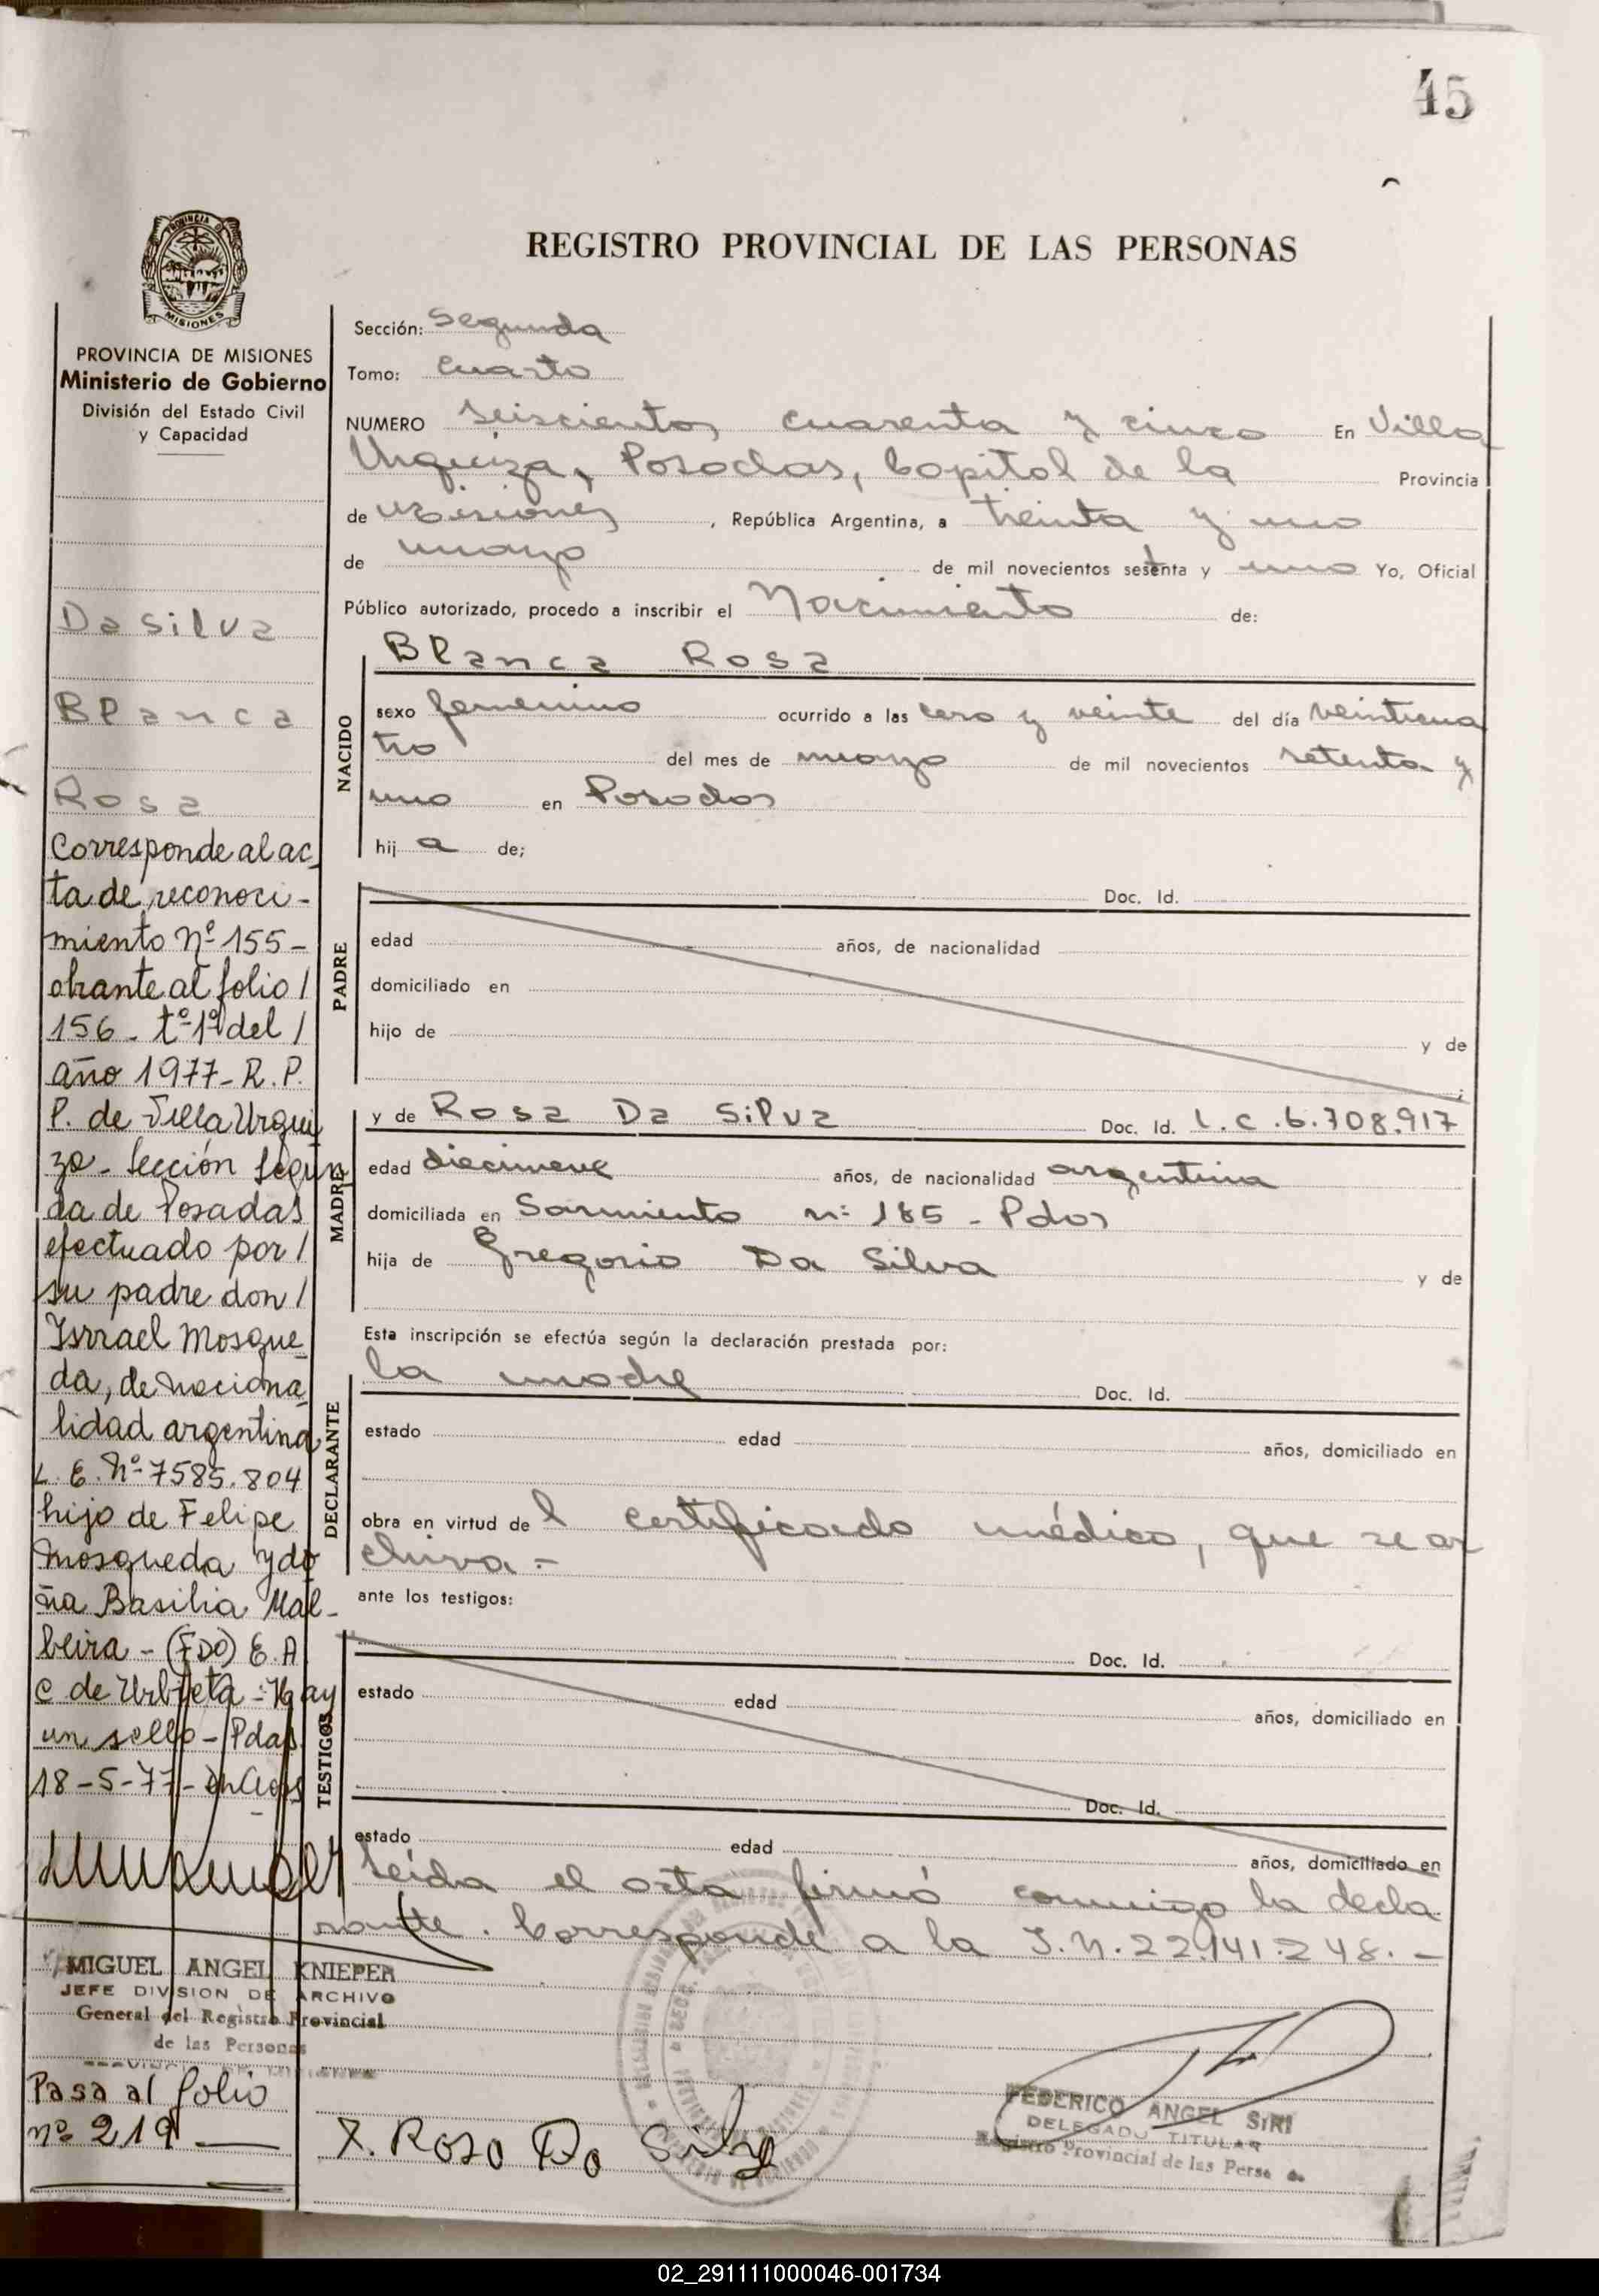 45
REGISTRO PROVINCIAL DE LAS PERSONAS
PROVINCIA
MISIONES
PROVINCIA DE MISIONES
Ministerio de Gobierno
División del Estado Civil
y Capacidad
Da Silva
Blanca
Rosa
Corresponde al ac
ta de reconoci-
miento Nº 155-
obrante al folio /
156 - tº 1º del /
año 1977 - R. P.
P. de Villa Urqui
za - Sección Segun
da de Posadas
efectuado por /
su padre don /
Isrrael Mosque
da, de naciona
lidad argentina
L. E. Nº 7585.804
hijo de Felipe
Mosqueda y do
ña Basilia Mal-
beira - (FDO) E. A
C de Urbieta - Hay
un sello - Pdas
18-5-77-
MIGUEL ANGEL KNIEPER
JEFE DIVISION DE ARCHIVO
General del Registro Provincial
de las Personas
Pasa al folio
nº 219
Sección: Segunda
Tomo: Cuarto
NUMERO Seiscientos cuarenta y cinco En Villa
Urquiza, Posadas, Capital de la Provincia
de Misiones, República Argentina, a treinta y uno
de mayo de mil novecientos setenta y uno Yo, Oficial
Público autorizado, procedo a inscribir el Nacimiento de:
NACIDO
Blanca Rosa
sexo femenino ocurrido a las cero y veinte del día veinticua
tro del mes de mayo de mil novecientos setenta y
uno en Posadas
hij a de;
PADRE
Doc. Id.
edad años, de nacionalidad
domiciliado en
hijo de y de
MADRE
y de Rosa Da Silva Doc. Id. L.C.6.708.917
edad diecinueve años, de nacionalidad argentina
domiciliada en Sarmiento nº 185 - Pdas
hija de Gregorio Da Silva y de
Esta inscripción se efectúa según la declaración prestada por:
DECLARANTE
la madre Doc. Id.
estado edad años, domiciliado en
obra en virtud del certificado médico, que se ar
chiva.-
ante los testigos:
TESTIGOS
Doc. Id.
estado edad años, domiciliado en
Doc. Id.
estado edad años, domiciliado en
Leída el acta firmó conmigo la decla
rante. Corresponde a la I.N. 22.141.248.-
X. Rosa Da Silva
FEDERICO ANGEL SIRI
DELEGADO TITULAR
Registro Provincial de las Perso
02_291111000046-001734